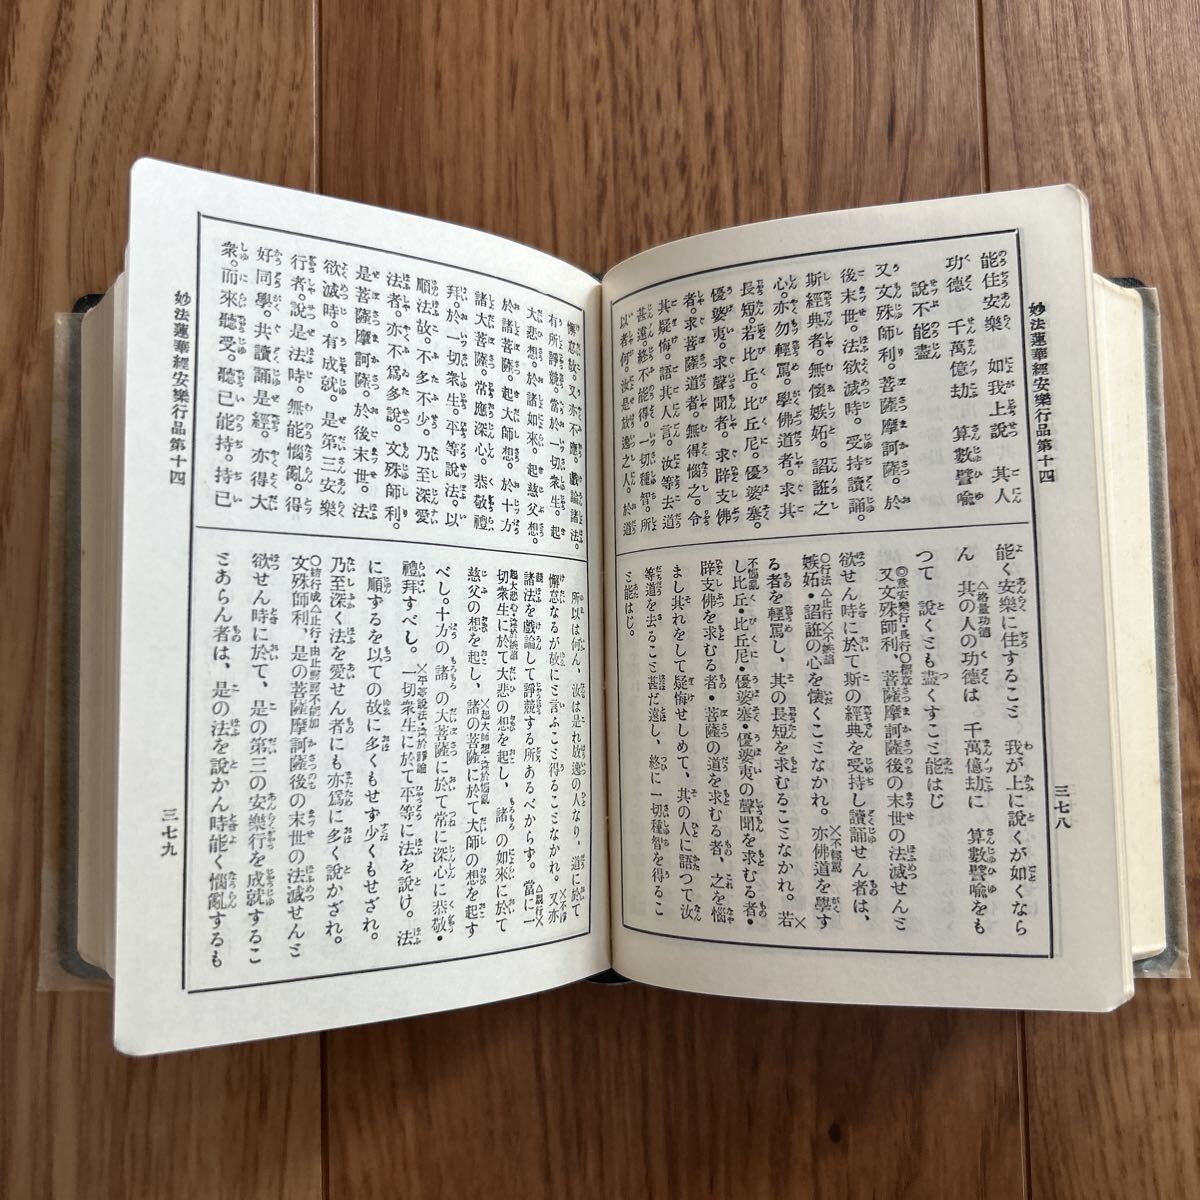 妙法蓮華經安樂行品第十四
三七八
能住安樂　如我上說　其人
功德　千萬億劫　算數譬喩
說不能盡
又文殊師利。菩薩摩訶薩。於
後末世。法欲滅時。受持讀誦。
斯經典者。無懷嫉妬。諂誑之
心。亦勿輕罵。學佛道者。求其
長短。若比丘。比丘尼。優婆塞。
優婆夷。求聲聞者。求辟支佛
者。求菩薩道者。無得惱之。令
其疑悔。語其人言。汝等去道
甚遠。終不能得。一切種智。所
以者何。汝是放逸之人。於道
能く安樂に住すること　我が上に說くが如くなら
ん　其の人の功德は　千萬億劫に　算數譬喩をも
つて　說くとも盡くすこと能はじ
又文殊師利、菩薩摩訶薩後の末世の法滅せんと
欲せん時に於て斯の經典を受持し讀誦せん者は、
嫉妬・諂誑の心を懷くことなかれ。亦佛道を學す
る者を輕罵し、其の長短を求むることなかれ。若
し比丘・比丘尼・優婆塞・優婆夷の聲聞を求むる者・
辟支佛を求むる者・菩薩の道を求むる者、之を惱
まし其れをして疑悔せしめて、其の人に語つて汝
等道を去ること甚だ遠し、終に一切種智を得るこ
と能はじ。
懈怠故。又亦不應。戲論諸法。
有所諍競。當於一切衆生。起
大悲想。於諸如來。起慈父想。
於諸菩薩。起大師想。於十方
諸大菩薩。常應深心。恭敬禮
拜。於一切衆生。平等說法。以
順法故。不多不少。乃至深愛
法者。亦不爲多說。文殊師利。
是菩薩摩訶薩。於後末世。法
欲滅時。有成就。是第三安樂
行者。說是法時。無能惱亂。得
好同學。共讀誦是經。亦得大
衆。而來聽受。聽已能持。持已
所以は何ん、汝は是れ放逸の人なり、道に於て
懈怠なるが故にと言ふこと得ることなかれ。又亦
諸法を戲論して諍競する所あるべからず。當に一
切衆生に於て大悲の想を起し、諸の如來に於て
慈父の想を起し、諸の菩薩に於て大師の想を起す
べし。十方の諸の大菩薩に於て常に深心に恭敬・
禮拜すべし。一切衆生に於て平等に法を說け。法
に順ずるを以ての故に多くもせず少くもせざれ。
乃至深く法を愛せん者にも亦爲に多く說かざれ。
文殊師利、是の菩薩摩訶薩後の末世の法滅せんと
欲せん時に於て、是の第三の安樂行を成就するこ
とあらん者は、是の法を說かん時能く惱亂するも
妙法蓮華經安樂行品第十四
三七九